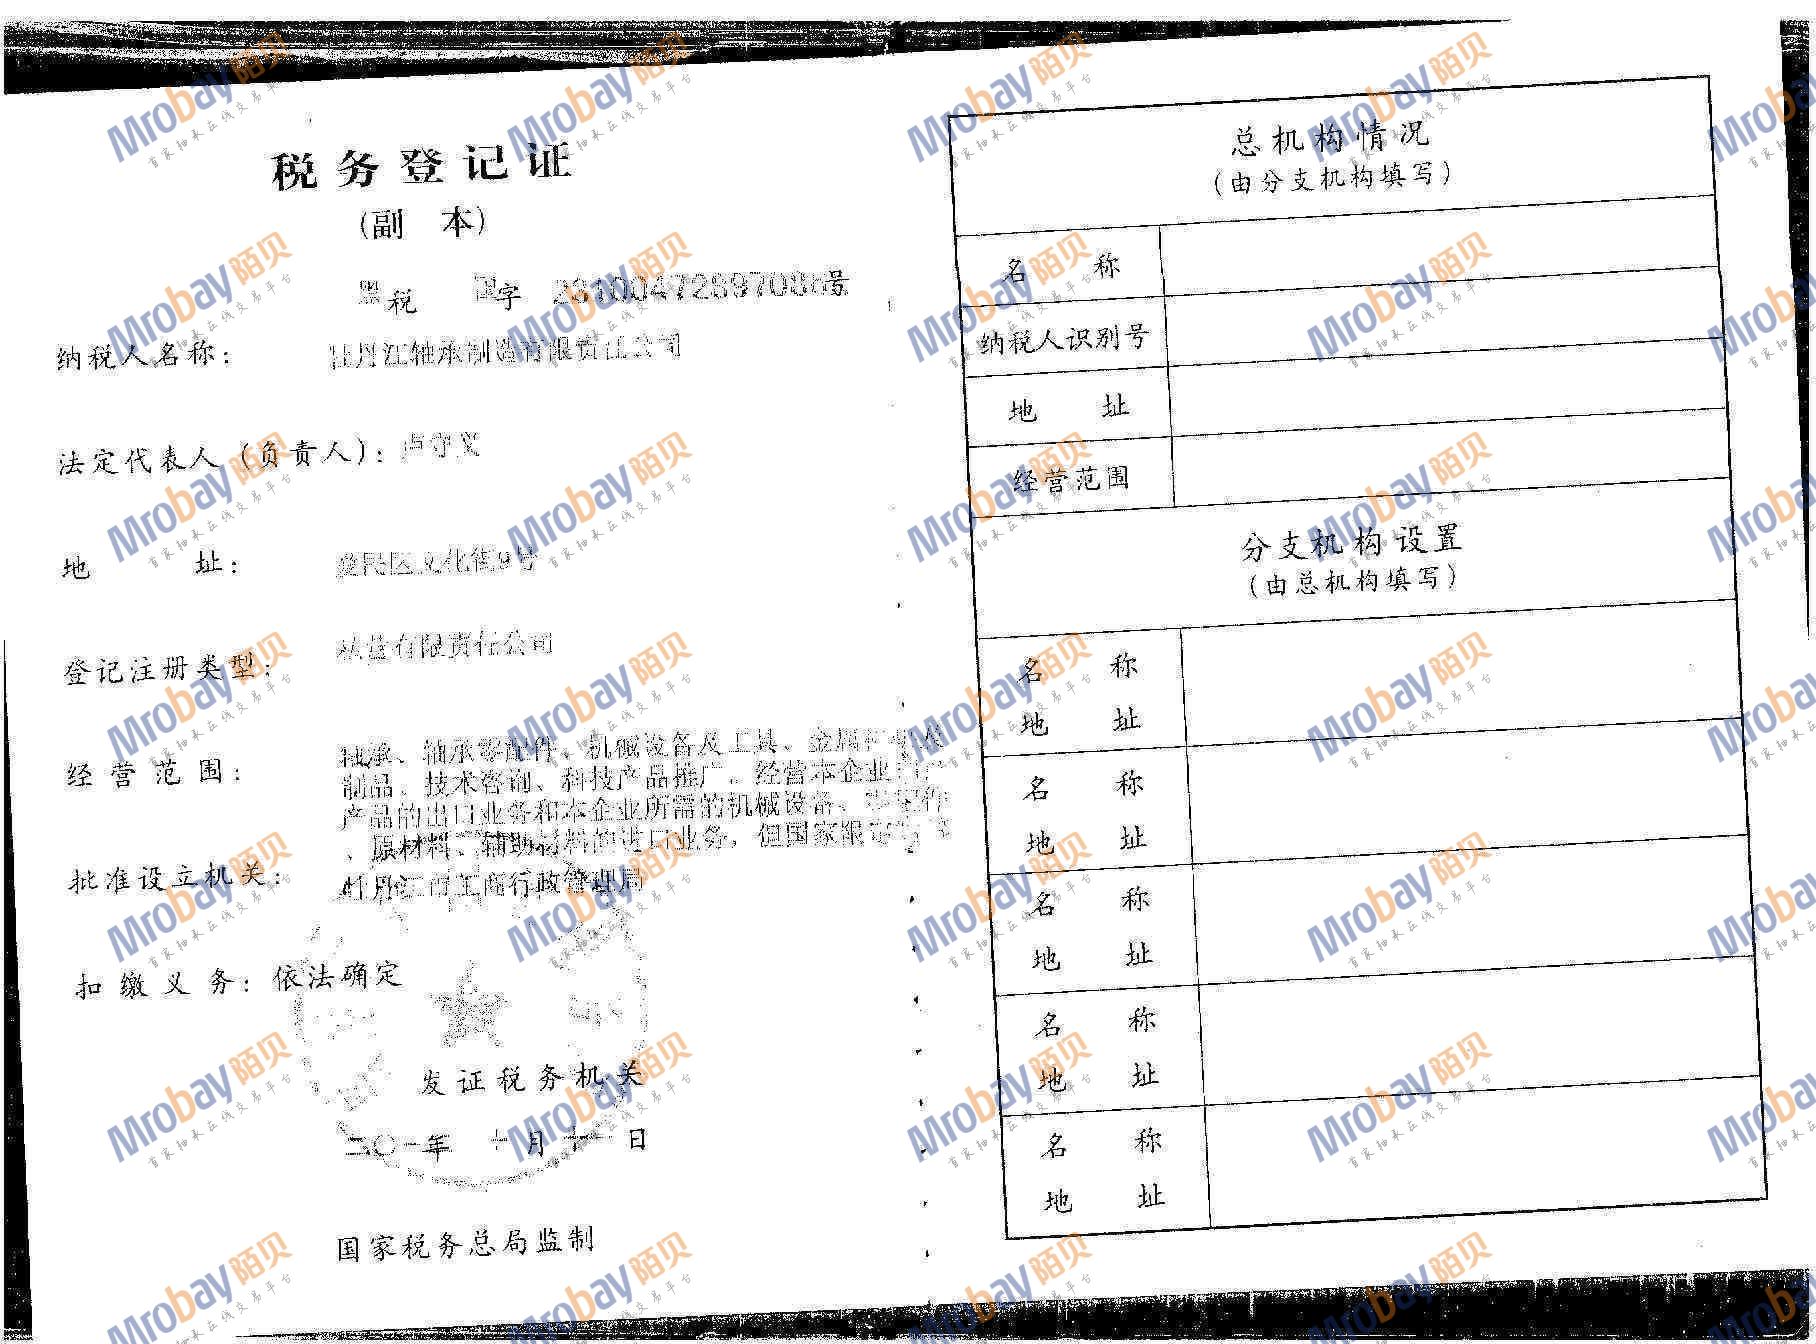 税务登记证
(副 本)
黑税 国字 号
纳税人名称: 牡丹江轴承制造有限责任公司
法定代表人(负责人): 卢守义
地 址: 爱民区文化街9号
登记注册类型: 有限责任公司
经营范围: 轴承、轴承零配件、机械设备及工具、金属
制品、技术咨询、科技产品推广。经营本企业
产品的出口业务和本企业所需的机械设备、零配件
、原材料、辅助材料的进口业务,但国家限
批准设立机关: 牡丹江市工商行政管理局
扣缴义务: 依法确定
发证税务机关
二〇一 年 十月十一日
国家税务总局监制
总机构情况
(由分支机构填写)
名 称
纳税人识别号
地 址
经营范围
分支机构设置
(由总机构填写)
名 称
地 址
名 称
地 址
名 称
地 址
名 称
地 址
名 称
地 址
Mrobay陌贝
首家轴承在线交易平台